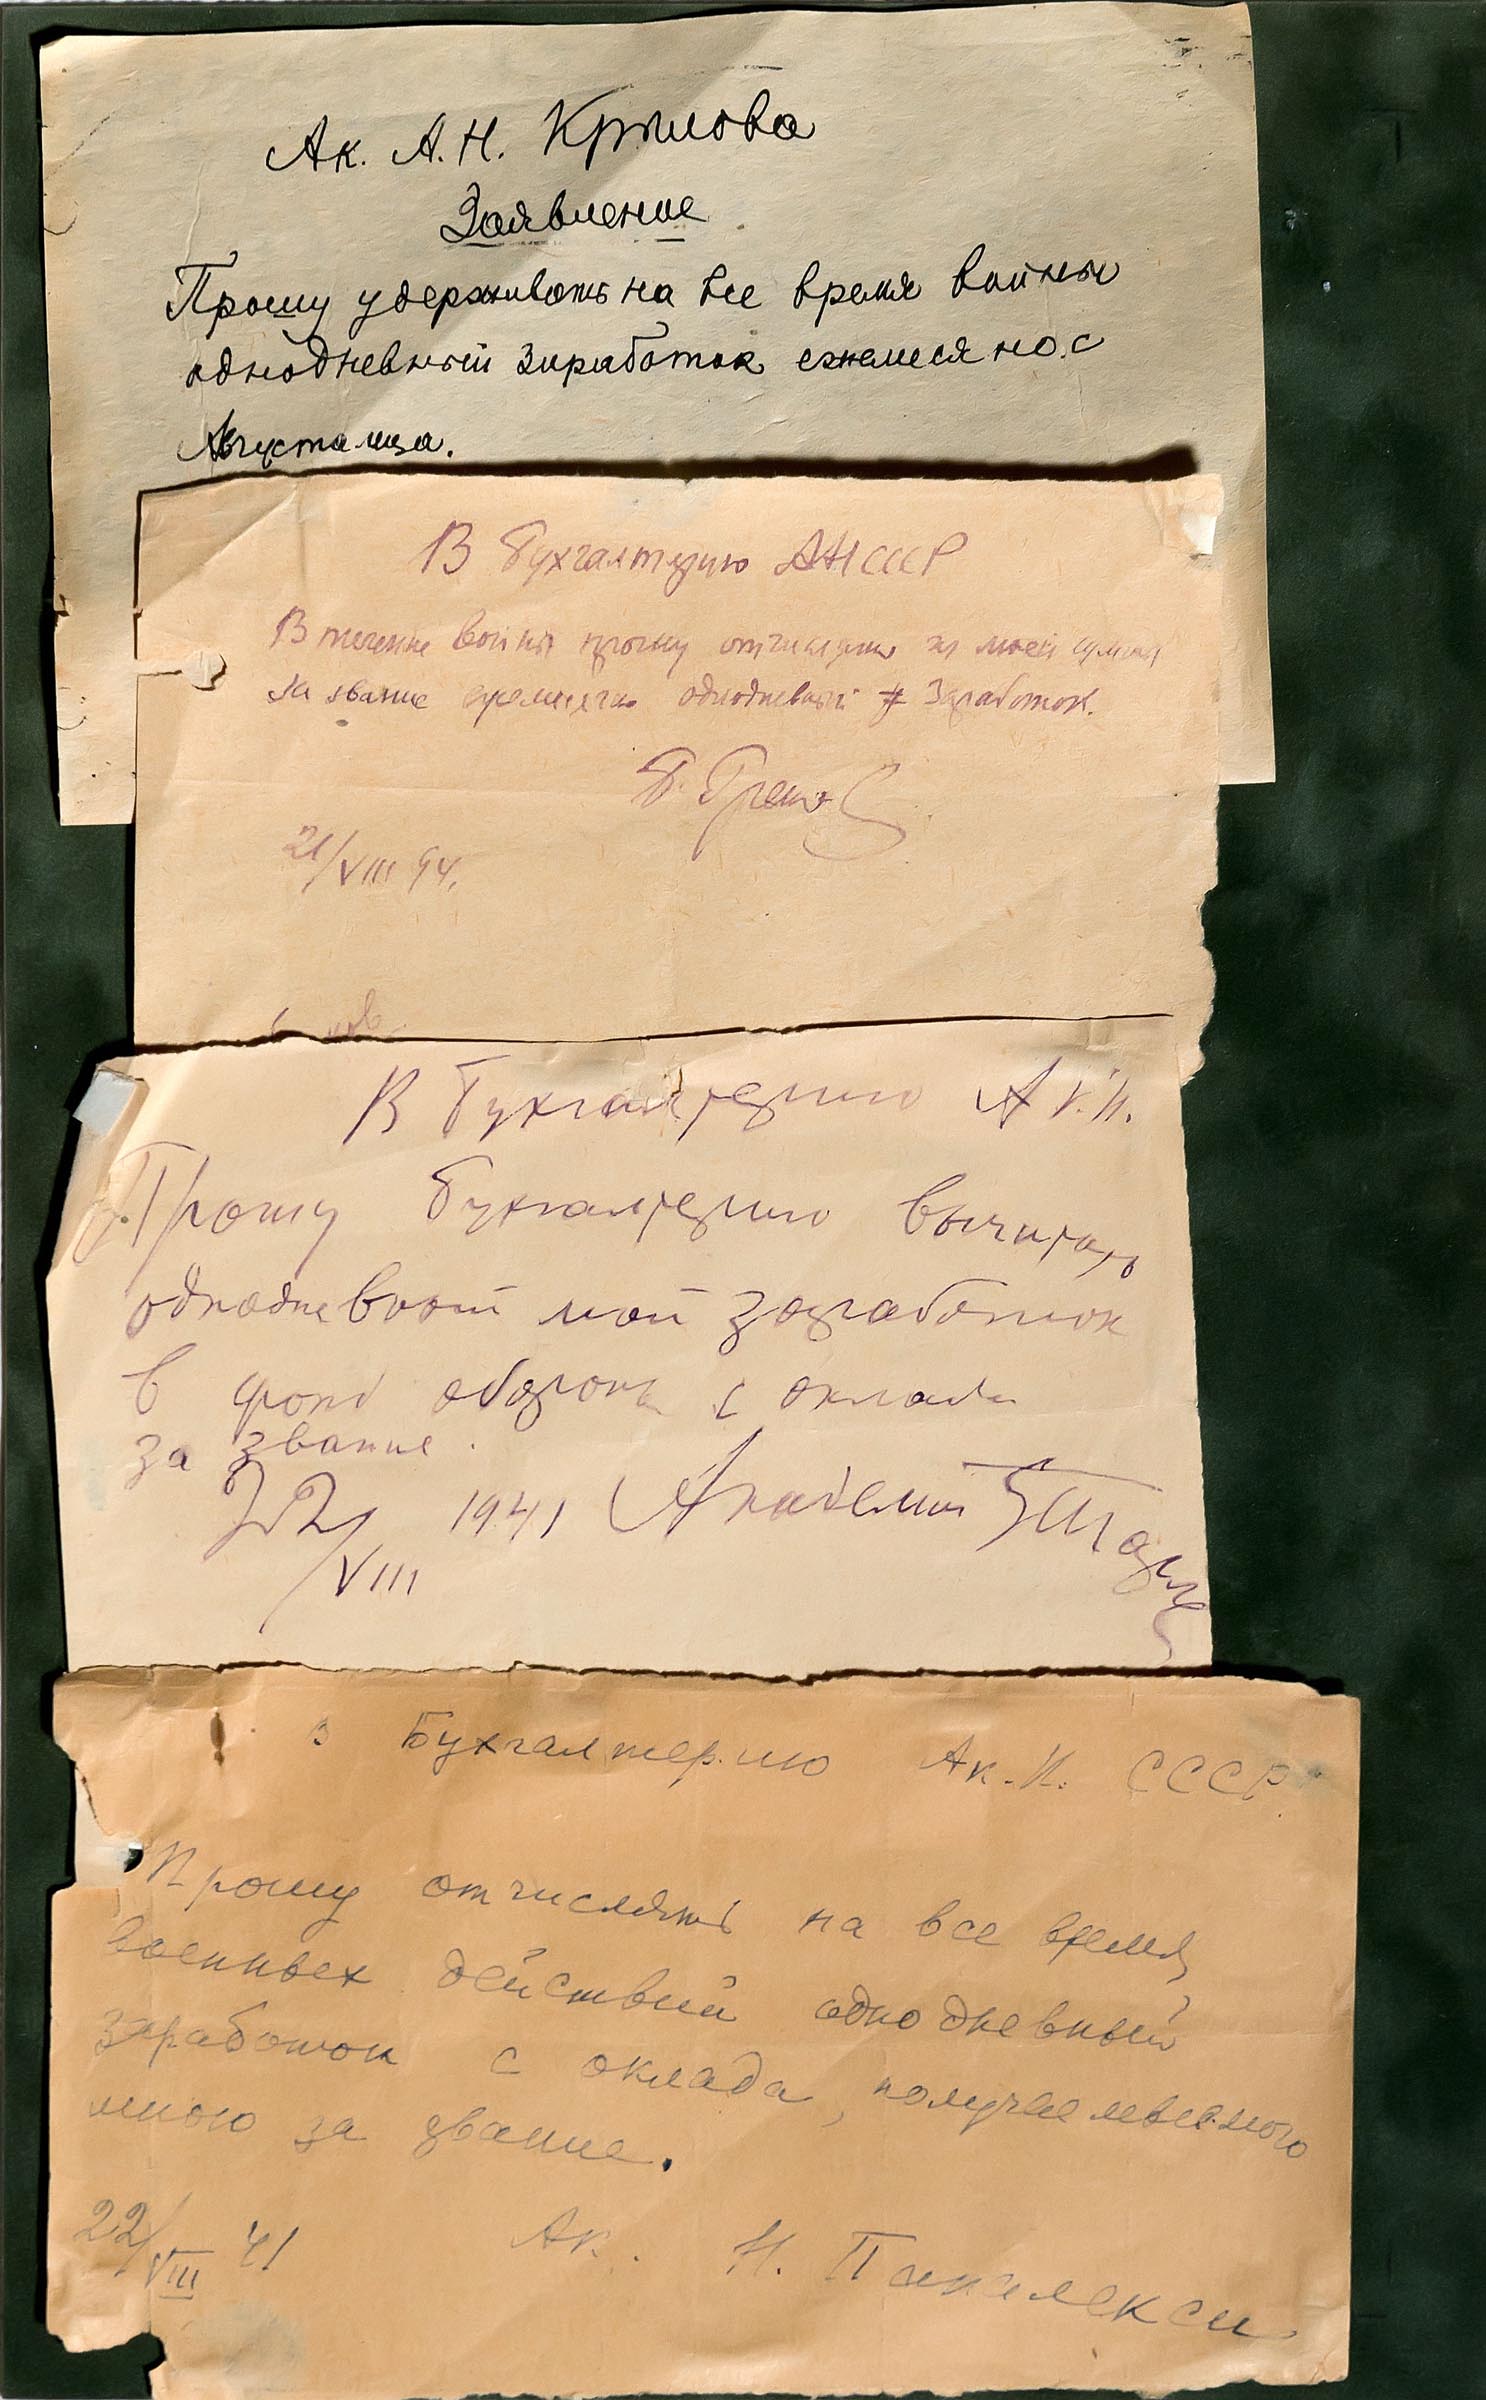 Ак. А.Н. Крылова
Заявление
Прошу удерживать на все время войны
однодневный заработок ежемеся но. с
Августа мца.
В бухгалтерию АН СССР
В течение войны прошу отчислять из моей суммы
за звание ежемесячно однодневный заработок.
Б. Греков
21/VIII 94.
В бухгалтерию А.К.Н.
Прошу бухгалтерию вычитать
однодневный мой заработок
в фонд обороны с оклада
за звание.
22/VIII 1941 Академик
в Бухгалтерию Ак. Н. СССР.
Прошу отчислять на все время
военных действий однодневный
заработок с оклада, получаемемого
мною за звание.
22/VIII 41 Ак. Н.